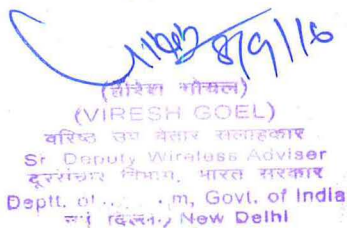 8/9/16
(वीरेश गोयल)
(VIRESH GOEL)
वरिष्ठ उप बेतार सलाहकार
Sr Deputy Wireless Adviser
दूरसंचार विभाग, भारत सरकार
Deptt. of m, Govt. of India
नई दिल्ली/ New Delhi